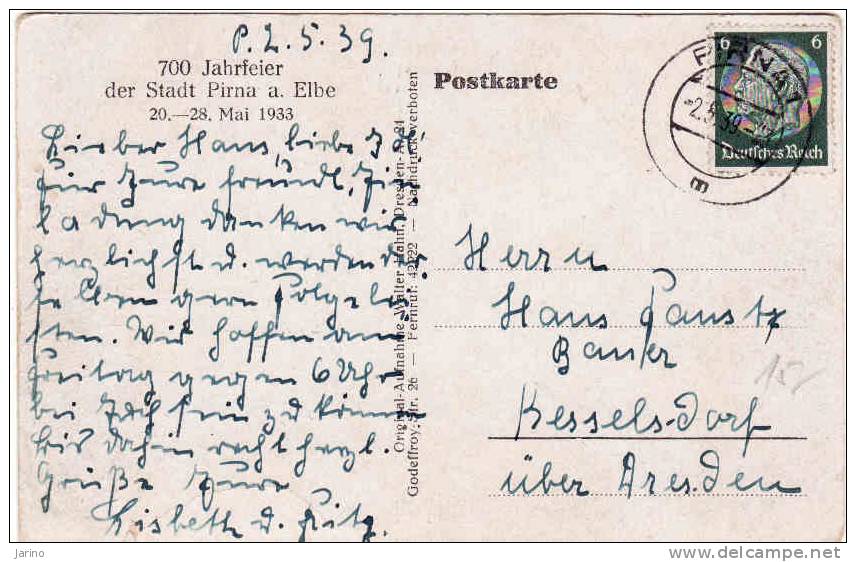 P. 2. 5. 39.
700 Jahrfeier
der Stadt Pirna a. Elbe
20.—28. Mai 1933
Lieber Hans, liebe
für Eure freundl. Ein-
ladung danken wir
herzlichst u. werden
gern Folge lei-
sten. Wir hoffen am
Freitag gegen 6 Uhr
bei Euch sein zu können
bis dahin recht herzl.
Grüße Eure
Lisbeth u. Fritz.
Original-Aufnahme Walter Hahn, Dresden-A. 24
Godeffroy-Str. 26 — Fernruf: 42222 — Nachdruck verboten
Postkarte
6 6
Deutsches Reich
PIRNA
-2.5.39
Herrn
Hans
Kesselsdorf
über Dresden
152
Jarino
www.delcampe.net